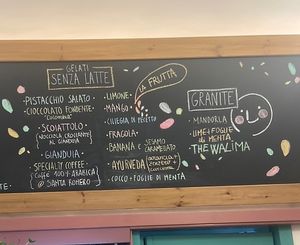 GELATI
SENZA LATTE
• PISTACCHIO SALATO •
• CIOCCOLATO FONDENTE •
"COLOMBIA"
• SCOIATTOLO •
(NOCCIOLA CROCCANTE
AL GIANDUIA)
• GIANDUIA •
• SPECIALTY COFFEE •
(CAFFÈ 100% ARABICA
@ SANTA ROMERO)
LA FRUTTA
• LIMONE •
• MANGO •
• CILIEGIA DI
• FRAGOLA •
• BANANA E SESAMO
CARAMELLATO
• AYURVEDA
• COCCO + FOGLIE DI MENTA
GRANITE
• MANDORLA
• LIME + FOGLIE
DI MENTA
• THE WALIMA
TE